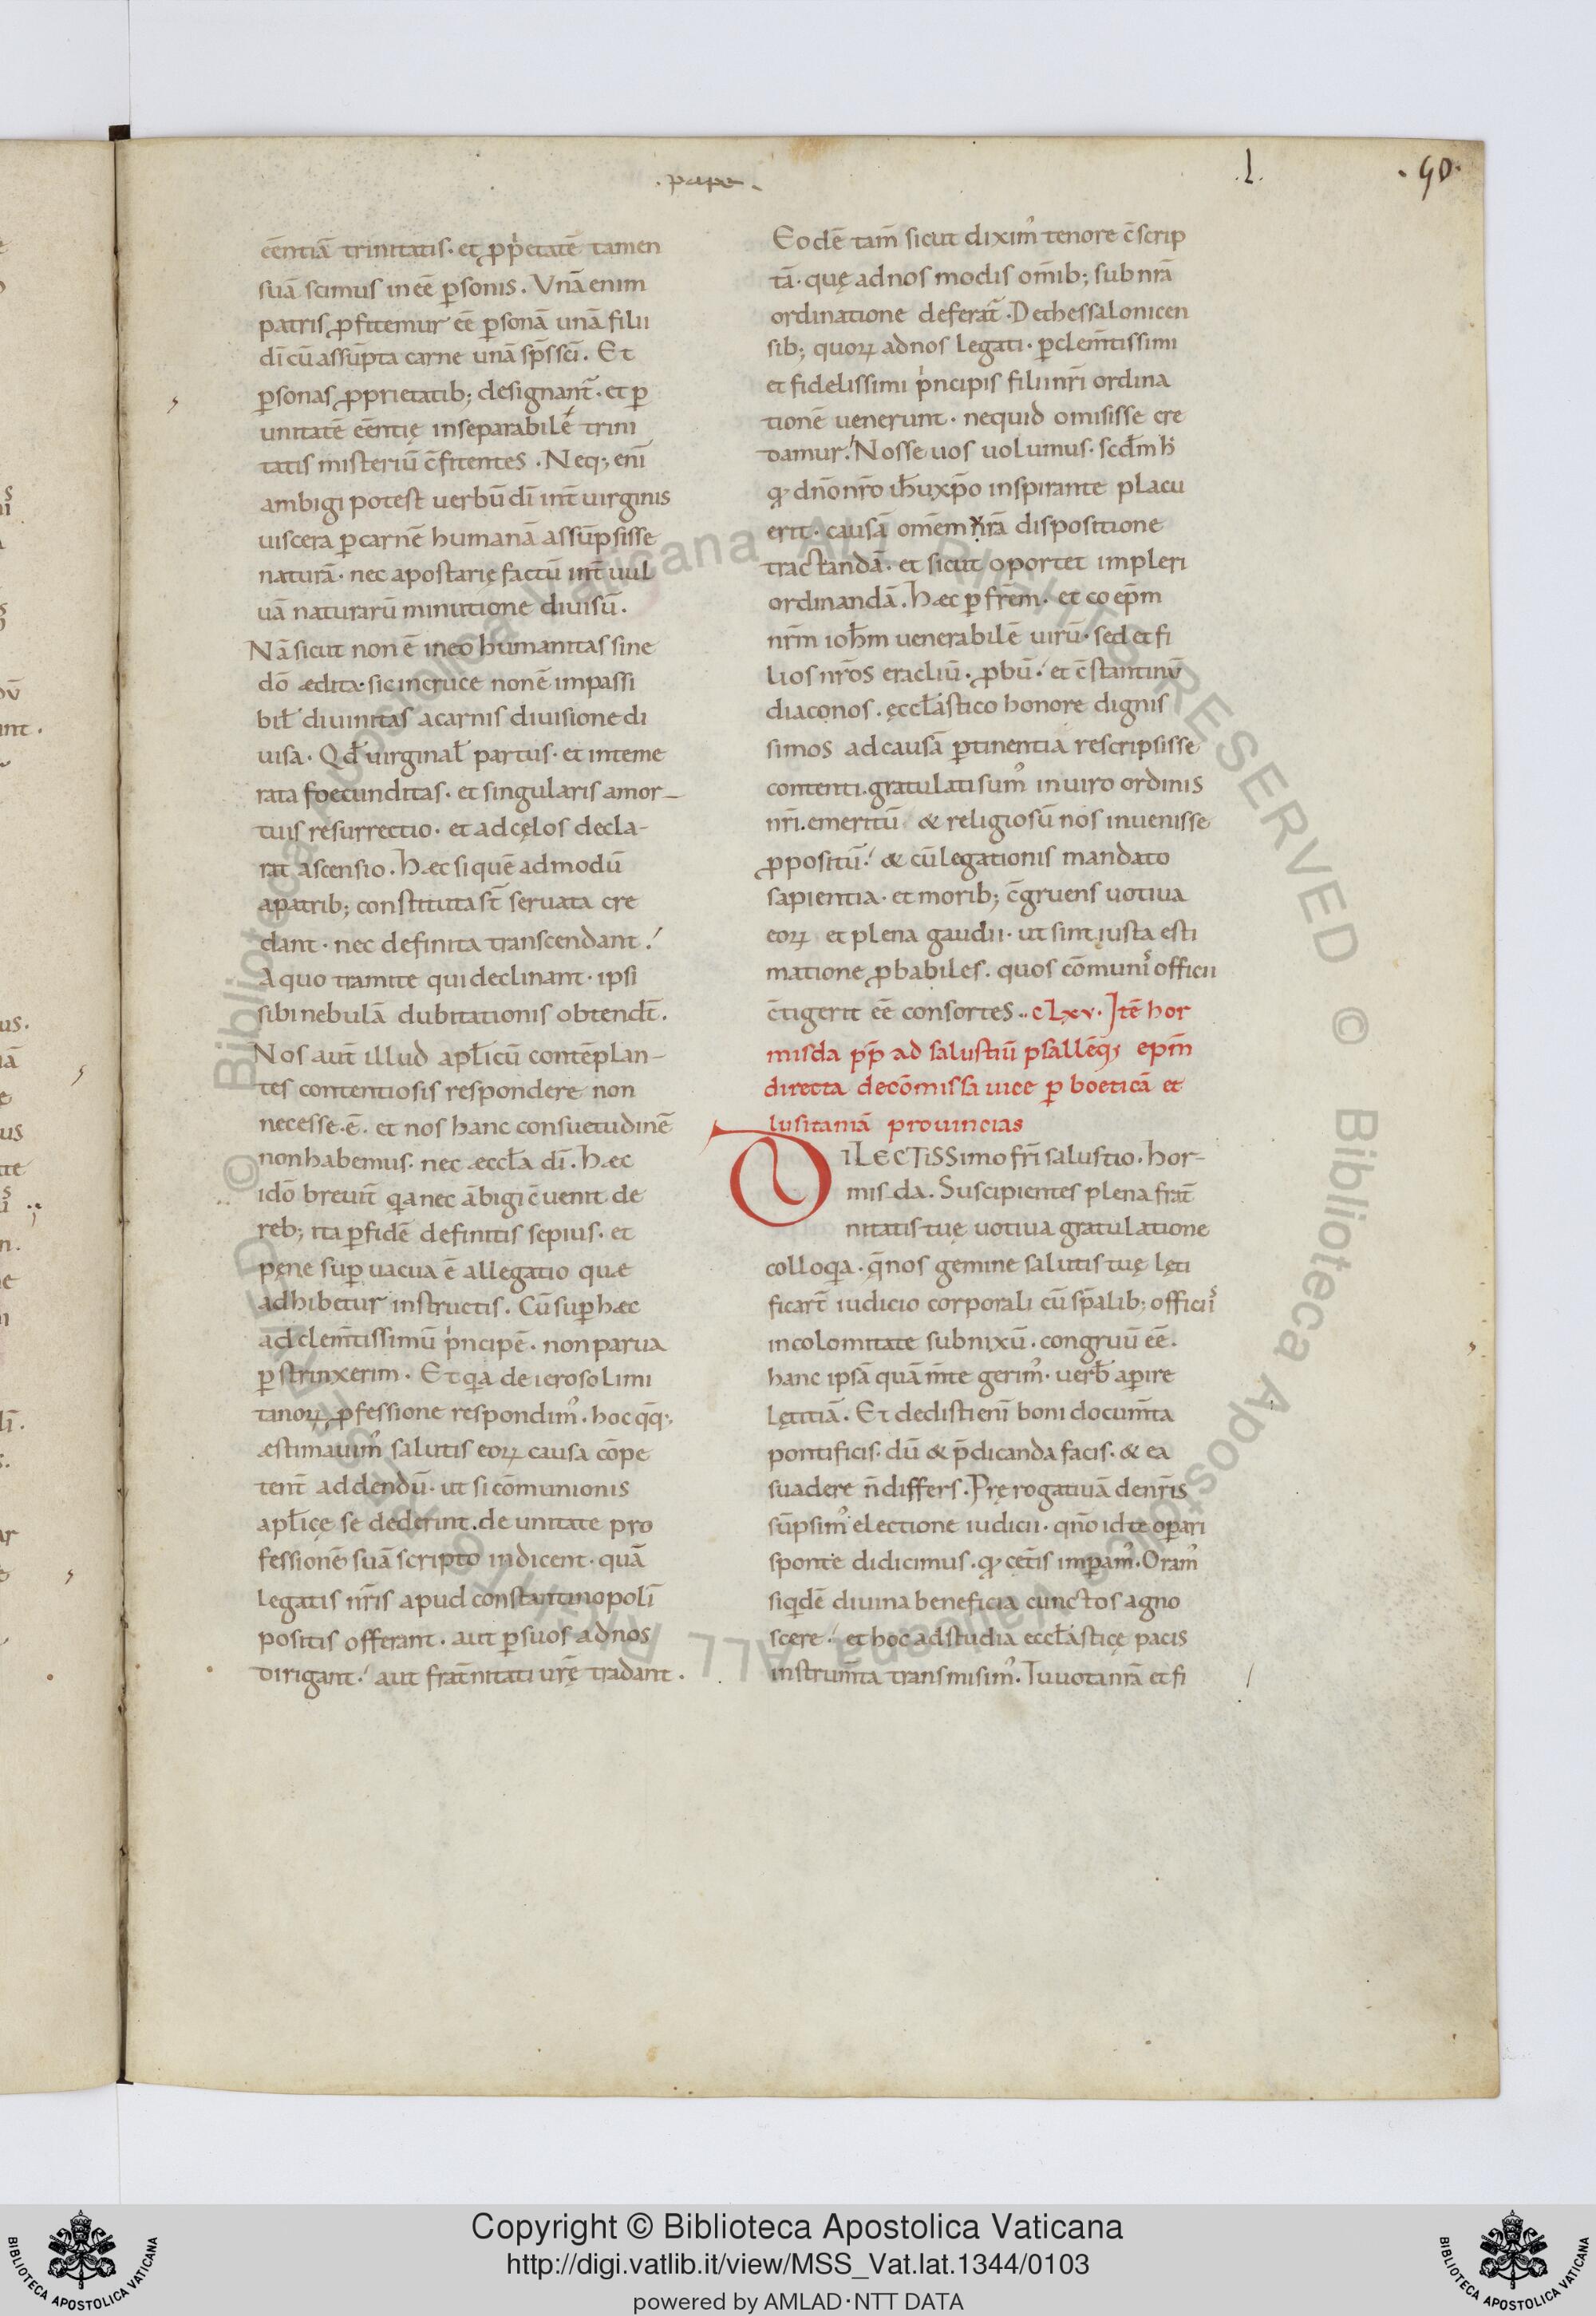 .pape.
.L.
.50.
eēntiā trinitatis. et ꝓp̍etatē tamen
suā scimus ineē ꝑsonis. Vnā enim
patris ꝓfitemur eē ꝑsonā unā filii
dī cū assūpta carne unā sp̄s sc̄i. Et
ꝑsonas ꝓprietatib; designant̄. et ꝑ
unitatē eēntię inseparabilē trini
tatis misteriū c̄fitentes. Neq; enī
ambigi potest uerbū dī int̄ uirginis
uiscera ꝑ carnē humanā assūpsisse
naturā. nec apostarię factū int̄ uul
uā naturarū minutione diuisū.
Nā sicut non ē in eo humanitas sine
dō ædita. sic in cruce non ē impassi
bil̄ diuinitas a carnis diuisione di
uisa. Qd̄ uirginal̄ partus. et inteme
rata foecunditas. et singularis a mor-
tuis resurrectio. et ad cęlos decla-
rat ascensio. Hæc si quē admodū
a patrib; constituta st̄ seruata cre
dant. nec definita transcendant.
A quo tramite qui declinant. ipsi
sibi nebulā dubitationis obtendt̄.
Nos aut̄ illud apl̄icū contēplan-
tes contentiosis respondere non
necesse. ē. et nos hanc consuetudinē
non habemus. nec æccl̄a dī. Hæc
idō breuit̄ qa nec ābigi c̄uenit de
reb; ita ꝑ fidē definitis sepius. et
pęne suꝑuacua ē allegatio quæ
adhibetur instructis. Cū suꝑ hæc
ad clem̄tissimū p̍ncipē. non parua
ꝑstrinxerim. Et qa de ierosolimi
tanoꝝ ꝓfessione respondim᾽. hoc qq;
æstimauim᾽ salutis eoꝝ causa cōpe
tent̄ addendū. ut si cōmunionis
apl̄icę se dederint. de unitate pro
fessionē suā scripto indicent. quā
legatis nr̄is apud constantinopolī
positis offerant. aut ꝑ suos ad nos
dirigant. aut frat̄nitati ur̄ę tradant.
Eodē tam̄ sicut dixim᾽ tenore c̄scrip
tā. quę ad nos modis om̄ib; sub nr̄ā
ordinatione deferat̄. De thessalonicen
sib; quoꝝ ad nos legati. ꝑ clem̄tissimi
et fidelissimi p̍ncipis filii nr̄i ordina
tionē uenerunt. ne quid omisisse cre
damur. Nosse uos uolumus. scd̄m h̄
ꝙ dn̄o nr̄o ih̄u xp̄o inspirante placu
erit. causā om̄em nr̄ā dispositione
tractandā. et sicut oportet impleri
ordinandā. Hæc ꝑ fr̄em. et coep̄m
nr̄m ioh̄m uenerabilē uirū. sed et fi
lios nr̄os eracliū. ꝓbū. et c̄stantinū
diaconos. ęccl̄astico honore dignis
simos ad causā ꝑtinentia rescripsisse
contenti. gratulati sum᾽ in uiro ordinis
nr̄i. emeritū & religiosū nos inuenisse
ꝓpositū. & cū legationis mandato
sapientia. et morib; c̄gruens uotiua
eoꝝ et plena gaudii. ut sint iusta esti
matione ꝓbabiles. quos cōmunis officii
c̄tigerit eē consortes.. cLxv. Itē hor
misda pp̄ ad salustiū psallēq; ep̄m
directa de cōmissa uice ꝑ boeticā et
lusitaniā prouincias
DILECTISSimo fr̄i salustio. Hor-
misda. Suscipientes plena frat̄
nitatis tuę uotiua gratulatione
colloqa. q̄ nos gemine salutis tuę lęti
ficart̄ iudicio corporali cū sp̄alib; officiis
incolomitate subnixū. congruū eē.
hanc ipsā quā m̄te gerim᾽. uerb̄ aꝑire
lętitiā. Et dedisti enī boni docum̄ta
pontificis. dū & p̄dicanda facis. & ea
suadere n̄ differs. Prę rogatiuā de nr̄is
sūpsim᾽ electione iudicii. qn̄o id te oꝑari
sponte didicimus. ꝙ cet̄is imꝑam᾽. Oram᾽
siqdē diuina beneficia cunctos agno
scere. et hoc ad studia eccl̄asticę pacis
instrum̄ta transmisim᾽. Iuuota nr̄ā et fi
Copyright © Biblioteca Apostolica Vaticana
http://digi.vatlib.it/view/MSS_Vat.lat.1344/0103
powered by AMLAD·NTT DATA
BIBLIOTECA APOSTOLICA VATICANA
BIBLIOTECA APOSTOLICA VATICANA
© Biblioteca Apostolica Vaticana ALL RIGHTS RESERVED © Biblioteca Apostolica Vaticana ALL RIGHTS RESERVED